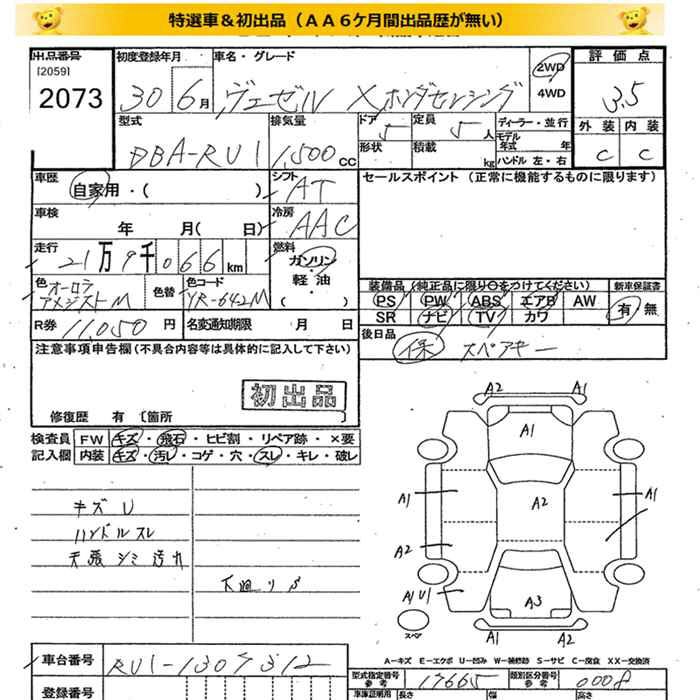 特選車＆初出品（ＡＡ６ケ月間出品歴が無い）
出品番号
[2059]
2073
初度登録年月
30 6月
車名・グレード
ヴェゼル Xホンダセンシング
2WD
4WD
評価点
3.5
外装 内装
C C
型式
DBA-RU1
排気量
1,500cc
ドア
5
形状
定員
5人
積載
kg
ディーラー・並行
モデル年式 年
ハンドル 左・右
車歴
自家用・( )
シフト
AT
車検
年 月( 日)
冷房
AAC
走行
21万9千066km
燃料
ガソリン
・
軽油
( )
色 オーロラアメジストM
色替
色コード
YR-642M
R券 11,050円
名変通知期限 月 日
セールスポイント（正常に機能するものに限ります）
装備品（純正品に限り○をつけてください）
新車保証書
PS PW ABS エアB AW
SR ナビ TV カワ
有・無
後日品
保 スペアキー
注意事項申告欄(不具合内容等は具体的に記入して下さい)
初出品
修復歴 有〔箇所 〕
検査員記入欄
FW キズ・飛石・ヒビ割・リペア跡・×要
内装 キズ・汚レ・コゲ・穴・スレ・キレ・破レ
キズU
ハンドルスレ
天張シミ汚れ
下廻りS
A2 A1
A1
A1 A2 A1
A2
A1U1 A3
スペア
A1 A2
A－キズ E－エクボ U－凹み W－補修跡 S－サビ C－腐食 XX－交換済
車台番号
RU1-1309312
型式指定番号
参考
17665
類別区分番号
参考
0008
登録番号
車庫証明用
長さ 幅 高